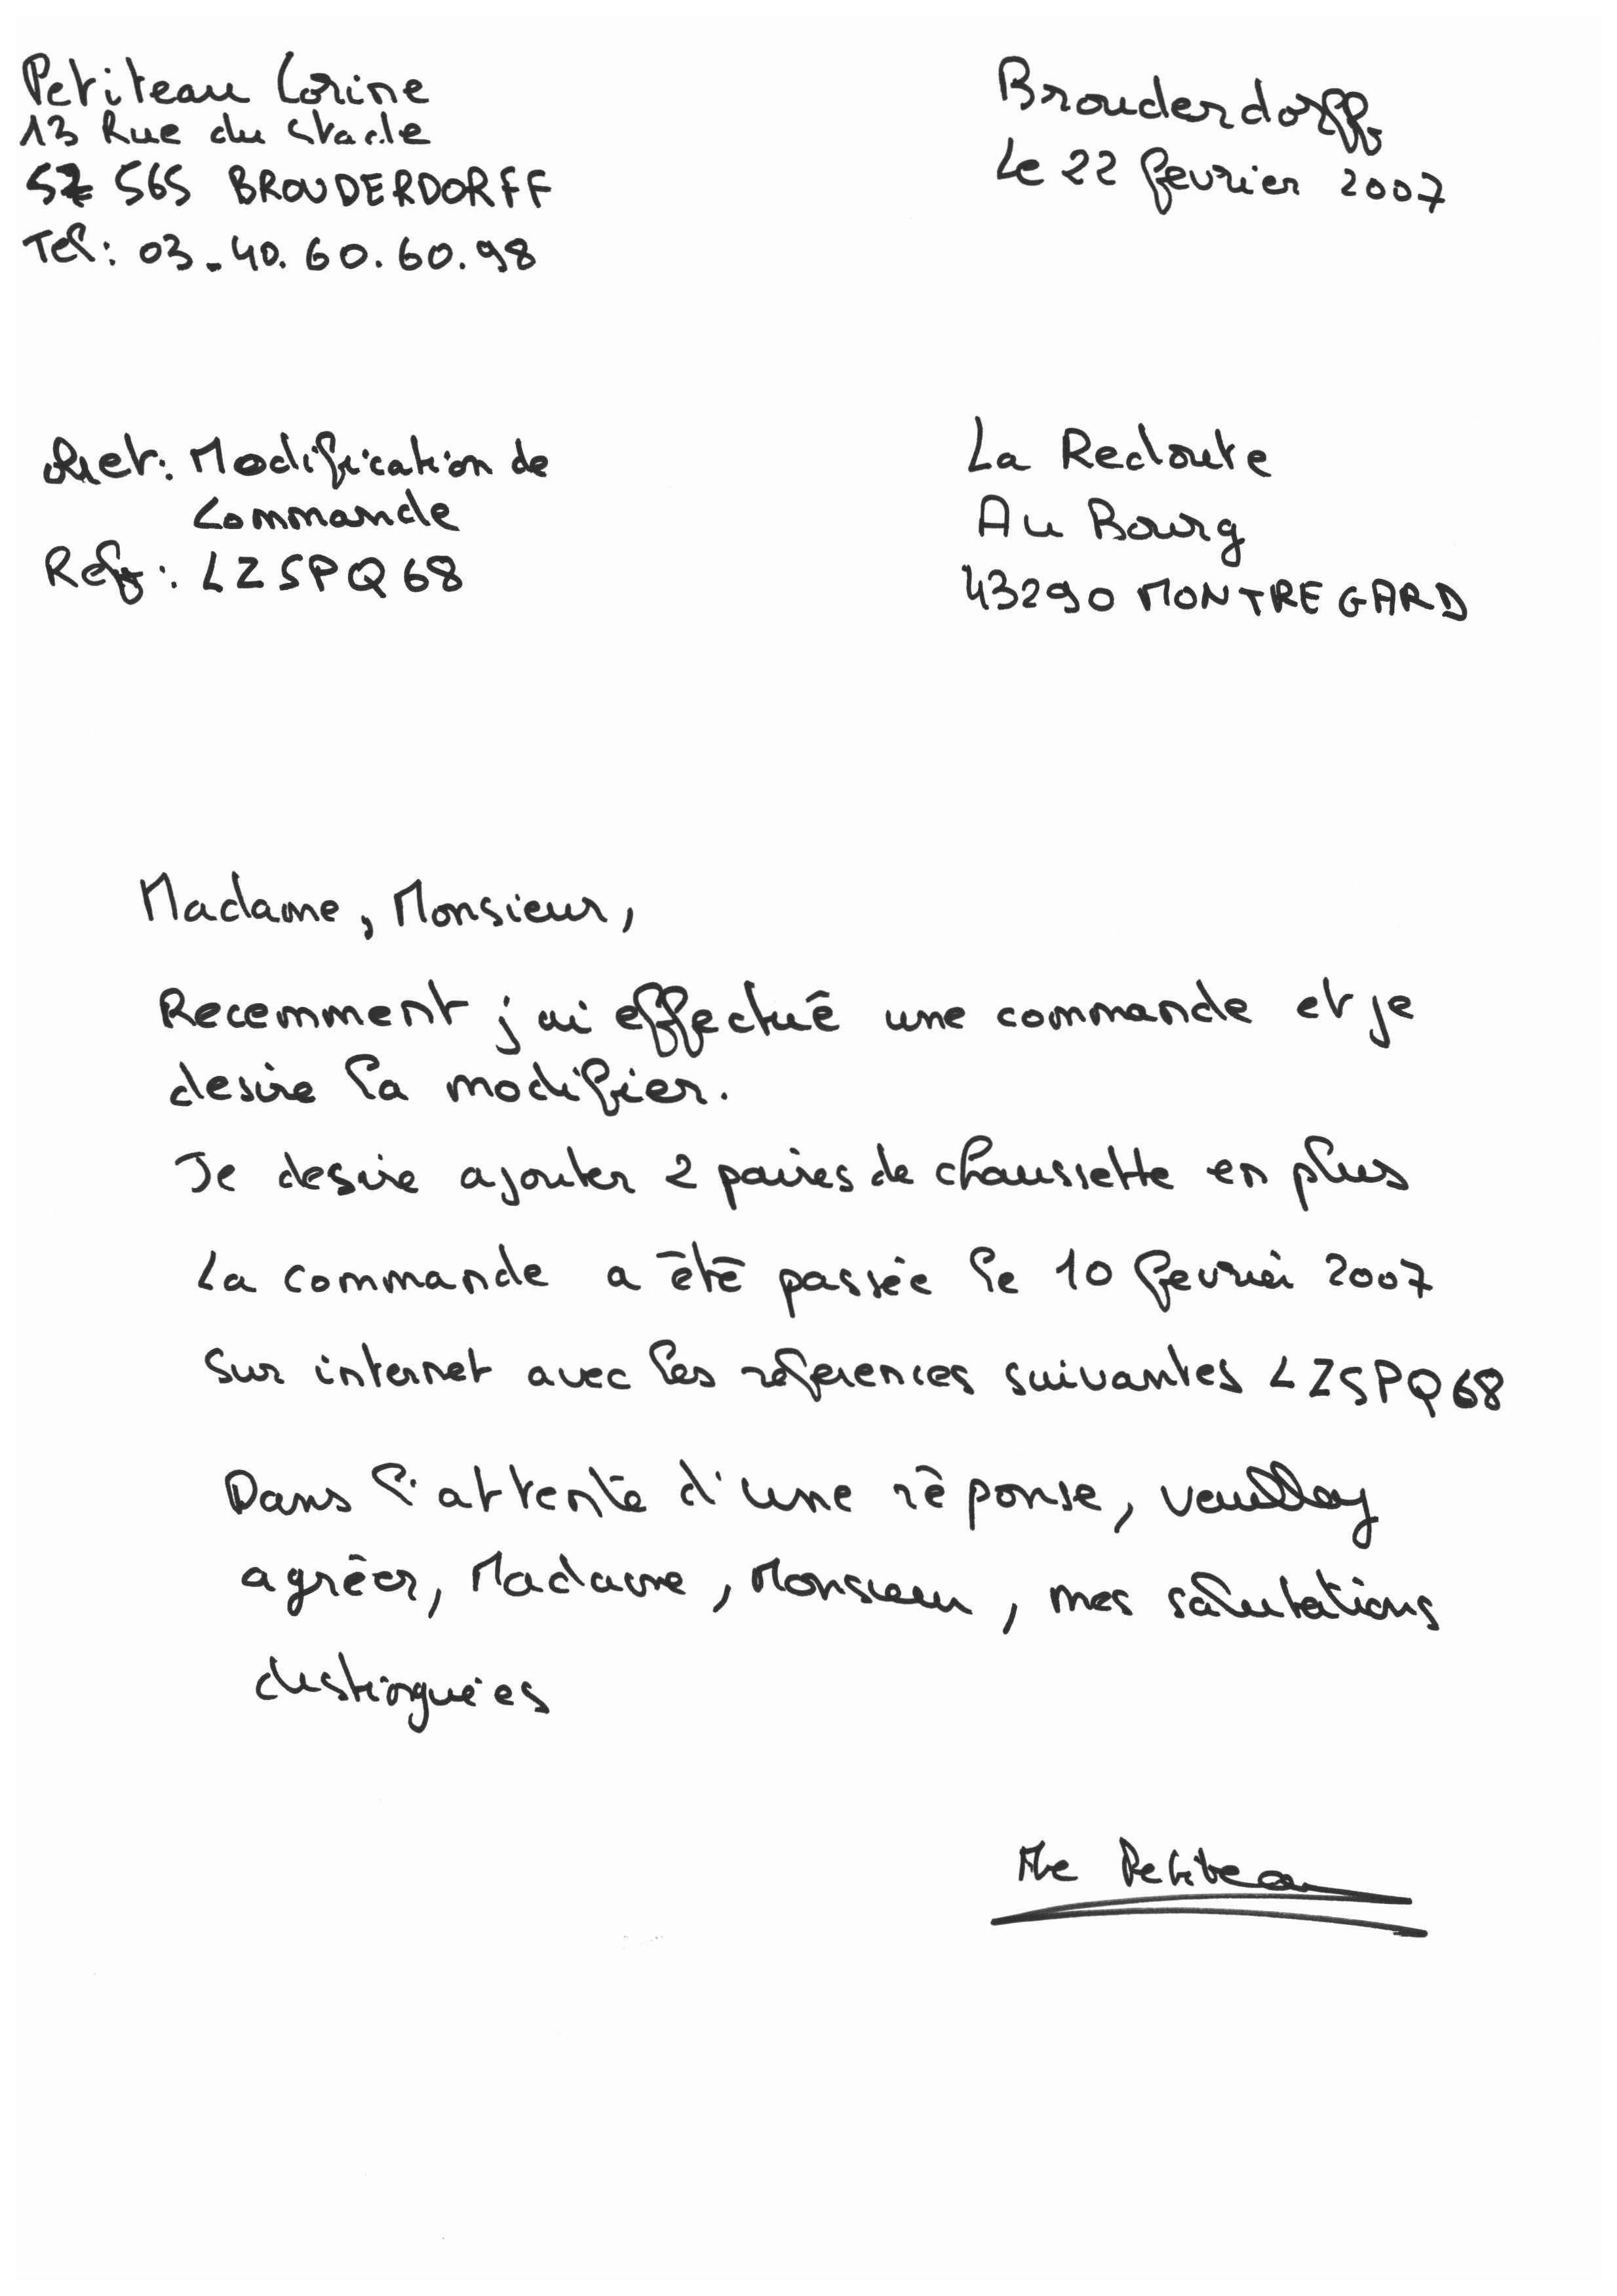 Petiteau Corine
13 Rue du Stade
57 565 BROUDERDORFF
Tel: 03.40.60.60.98
Brouderdorff,
Le 22 fevrier 2007
Objet: Modification de
Commande
Ref: LZSPQ68
La Redoute
Au Bourg
43290 MONTREGARD
Madame, Monsieur,
Recemment j'ai effectué une commande et je
desire la modifier.
Je desire ajouter 2 paires de chaussette en plus
La commande a été passée le 10 fevrier 2007
Sur internet avec les réferences suivantes LZSPQ68
Dans l'attente d'une réponse, veuillez
agréer, Madame, Monsieur, mes salutations
distinguées
Me Petiteau